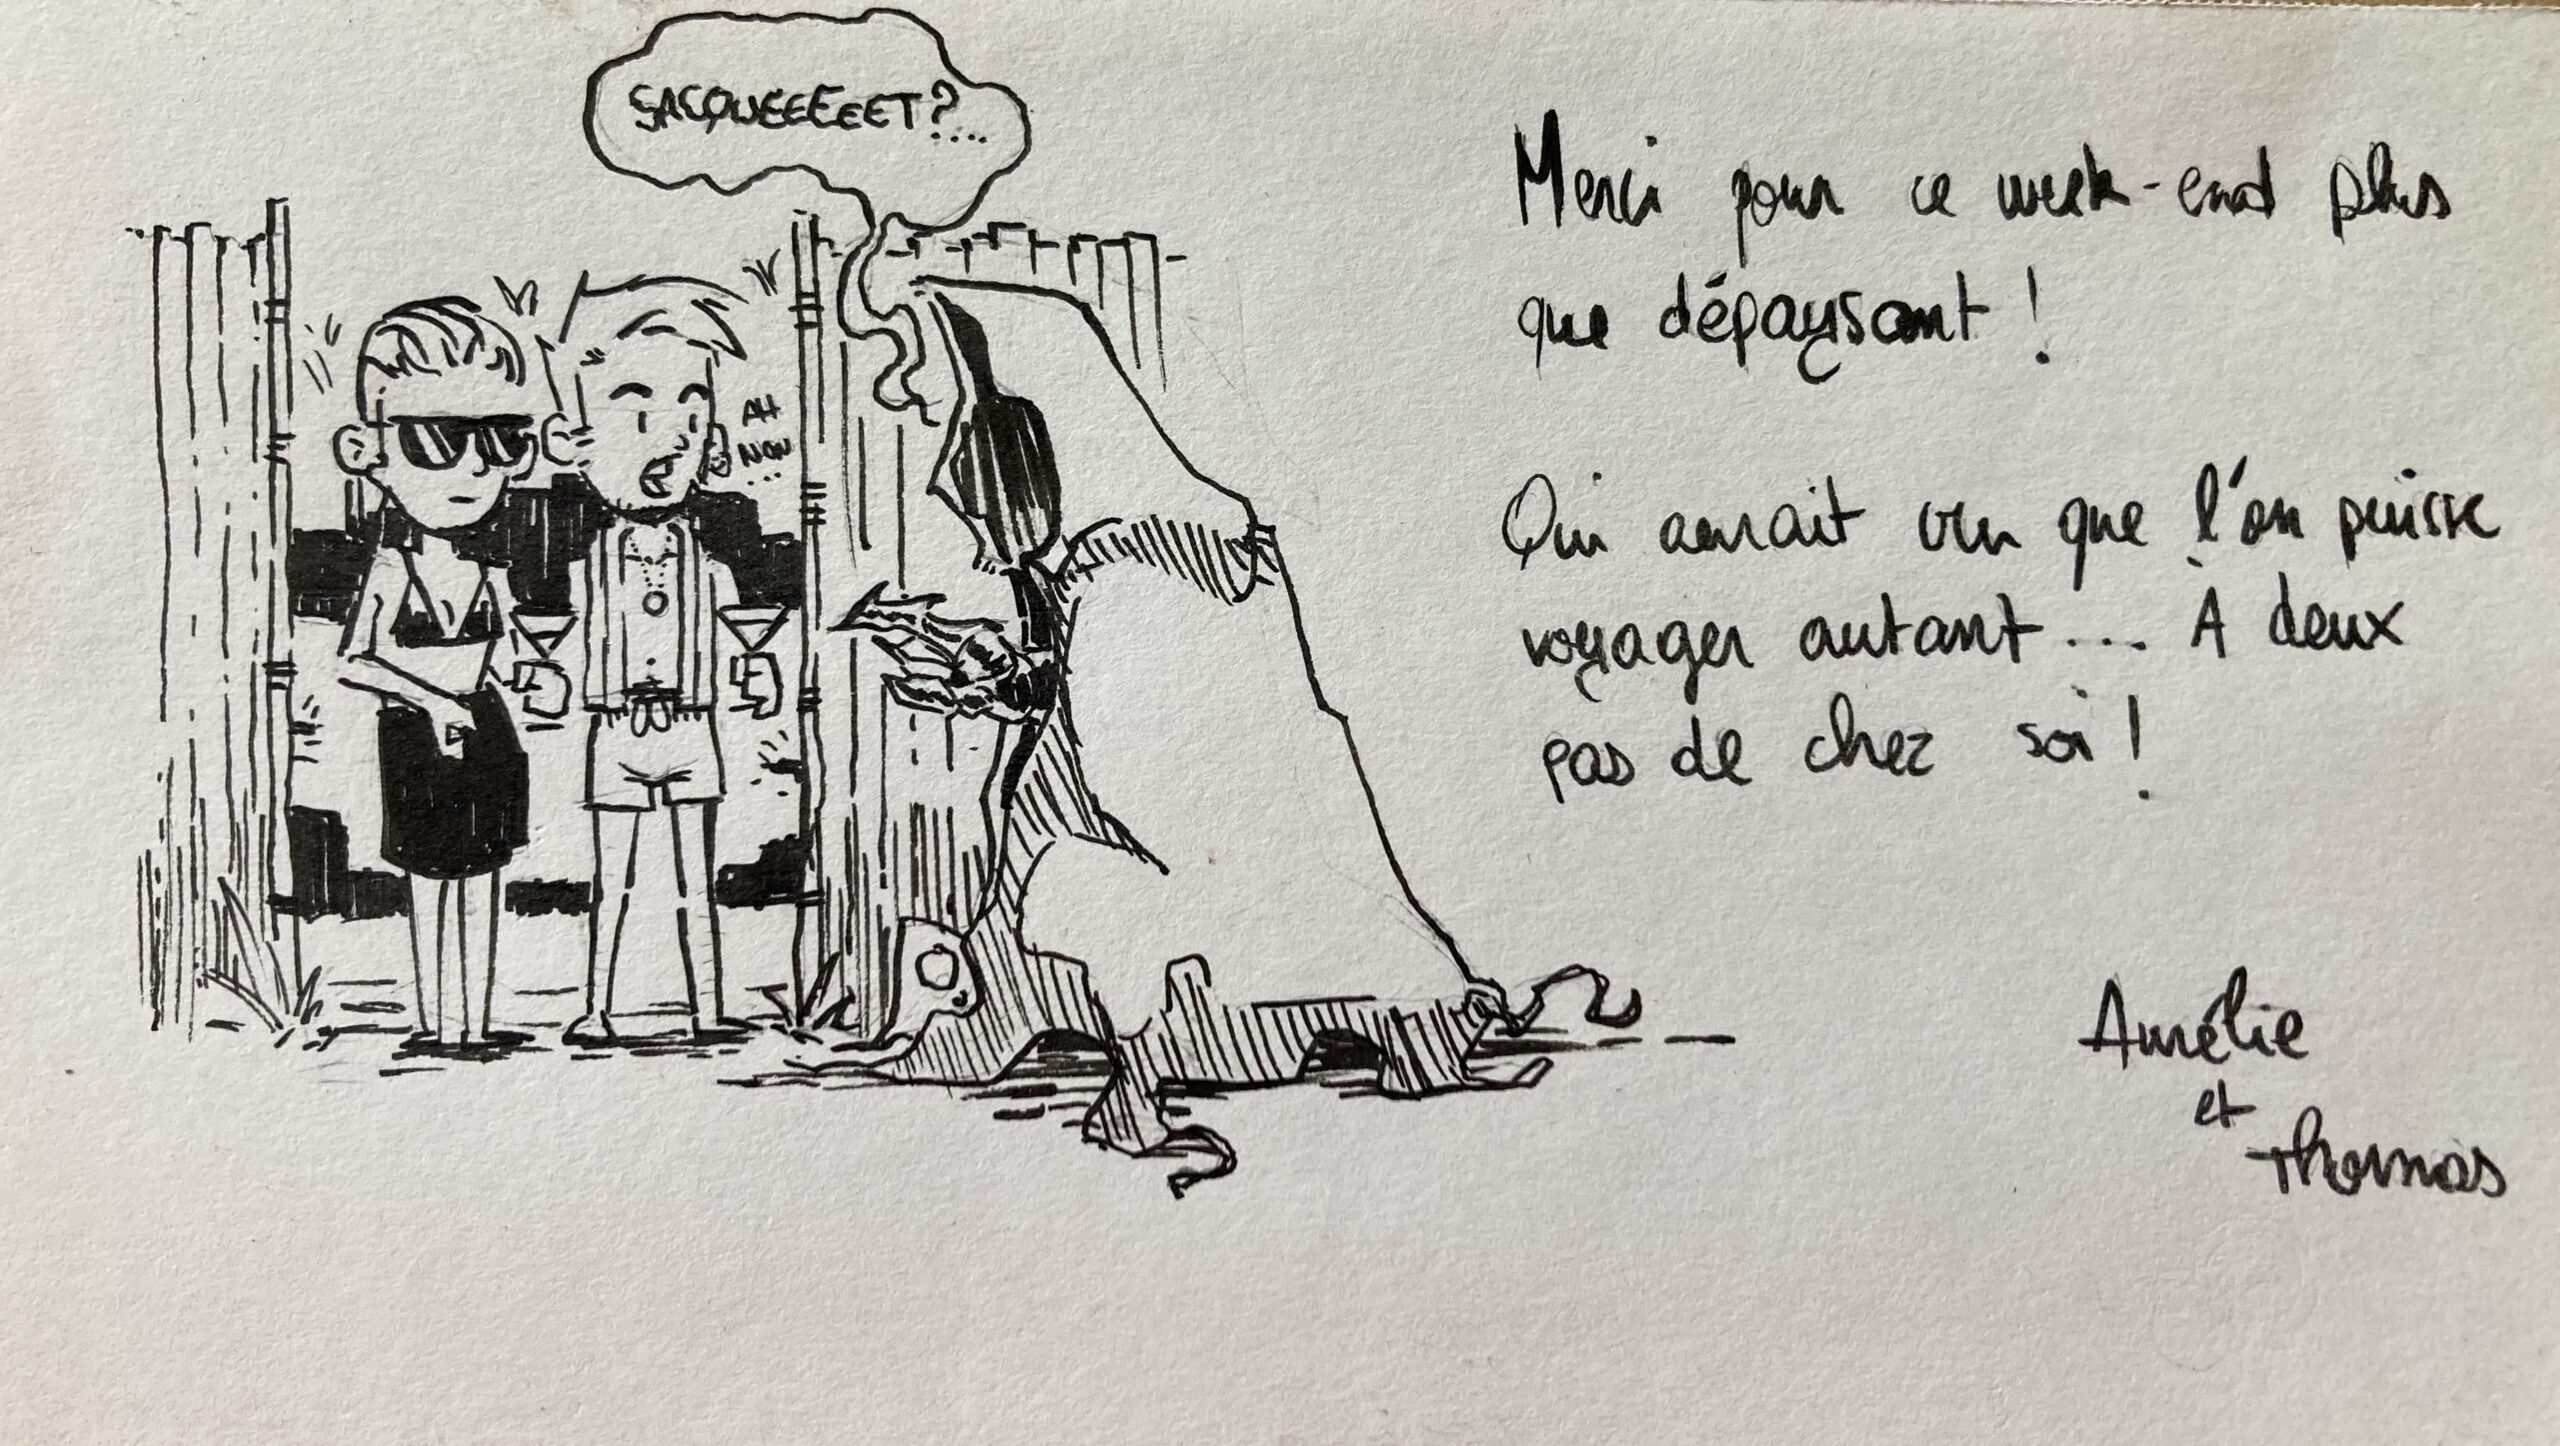 SACQUEEEEEET?...
AH
NON
...
Merci pour ce week-end plus
que dépaysant !
Qui aurait cru que l'on puisse
voyager autant... À deux
pas de chez soi !
Aurélie
et
Thomas